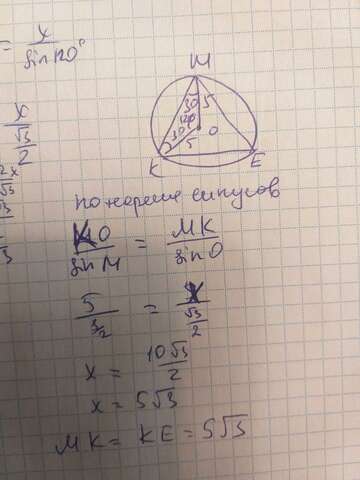 = x / sin120°
x
√3
2
2x
√3
√3
M
30 5
120
30 O
5
K E
по тореме синусов
KO / sin M = MK / sin O
5 / ½ = x / √3/2
x = 10√3 / 2
x = 5√3
MK = KE = 5√3